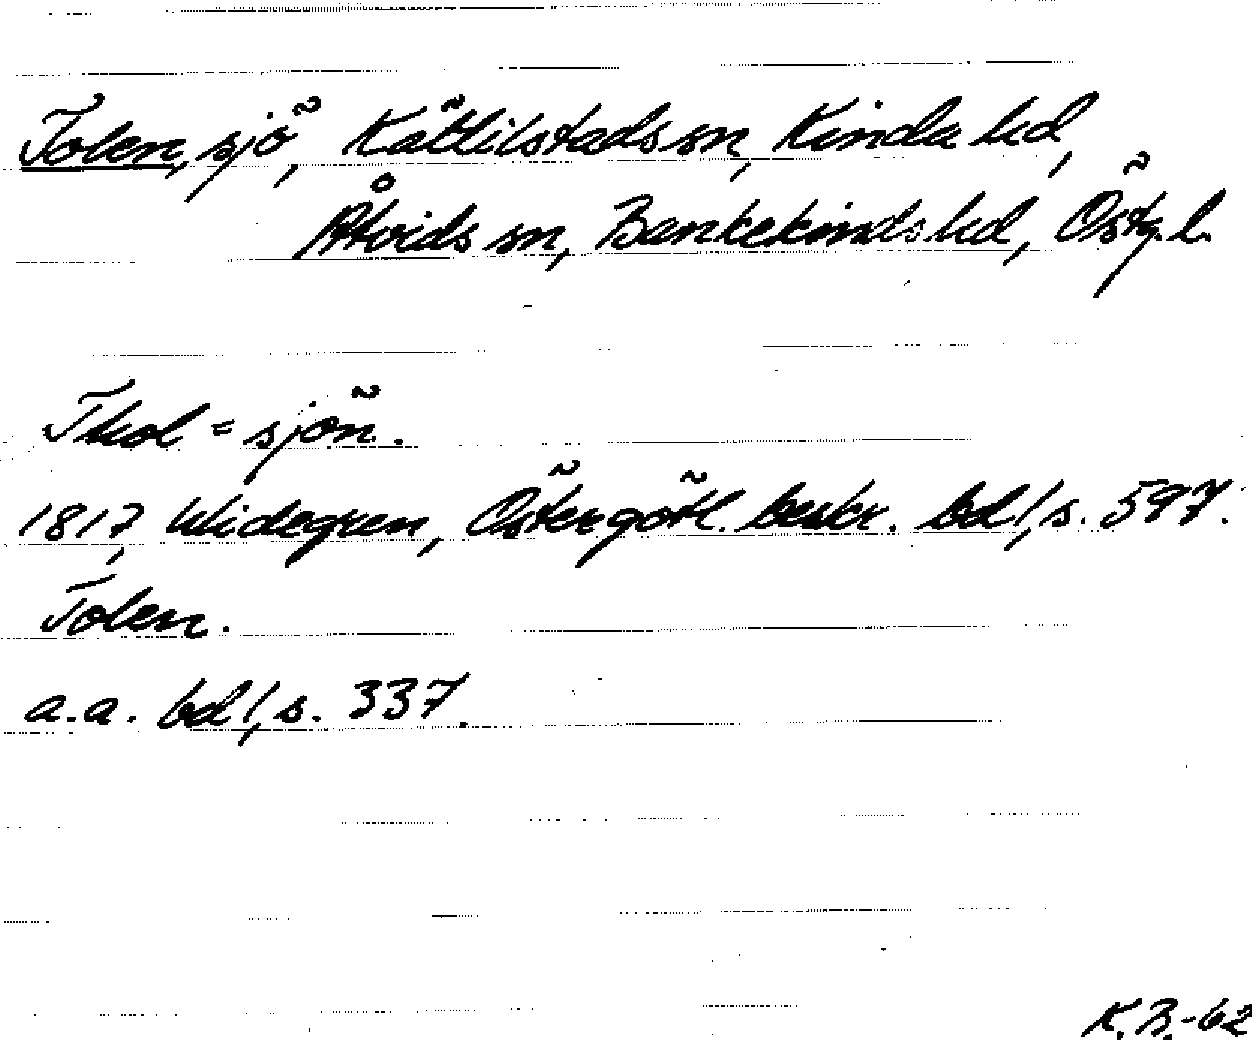 Tolen, sjö, Kättilstads sn, Kinda hd,
Åtvids sn, Bankekinds hd, Östg. l.
Thol = sjön.
1817, Widegren, Östergötl. beskr. bd 1, s. 597.
Tolen.
a.a. bd 1, s. 337.
K.B.-62